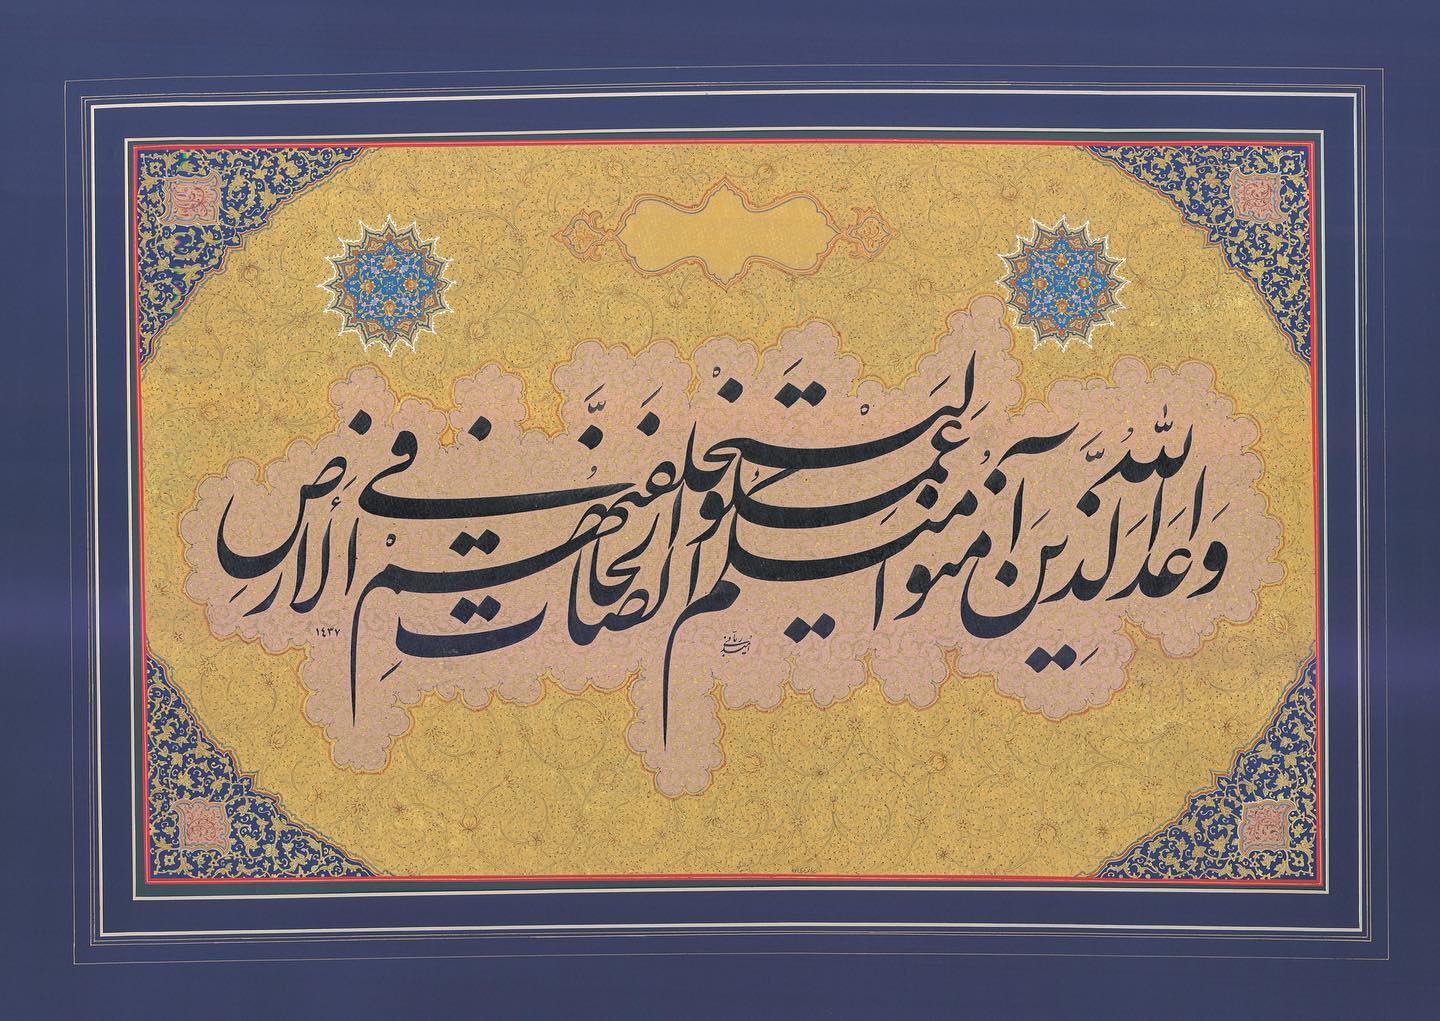 وَعَدَ اللّٰهُ الَّذينَ آمَنُوا مِنْكُمْ وَعَمِلُوا الصّالِحاتِ لَيَسْتَخْلِفَنَّهُمْ فِي الأَرْضِ
١٤٣٧